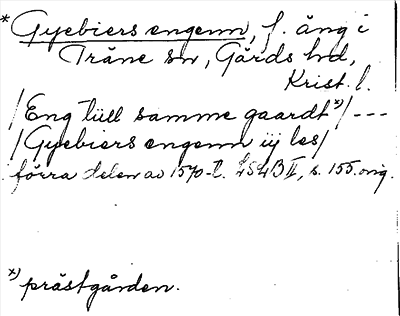 * Gyebiers engenn, f. äng i
Träne sn, Gärds hd,
Krist. l.
/Eng tiill samme gaardt x)/ ---
/Gyebiers engenn iij les/
förra delen av 1570-t. LSLB II, s. 155. orig.
x) prästgården.